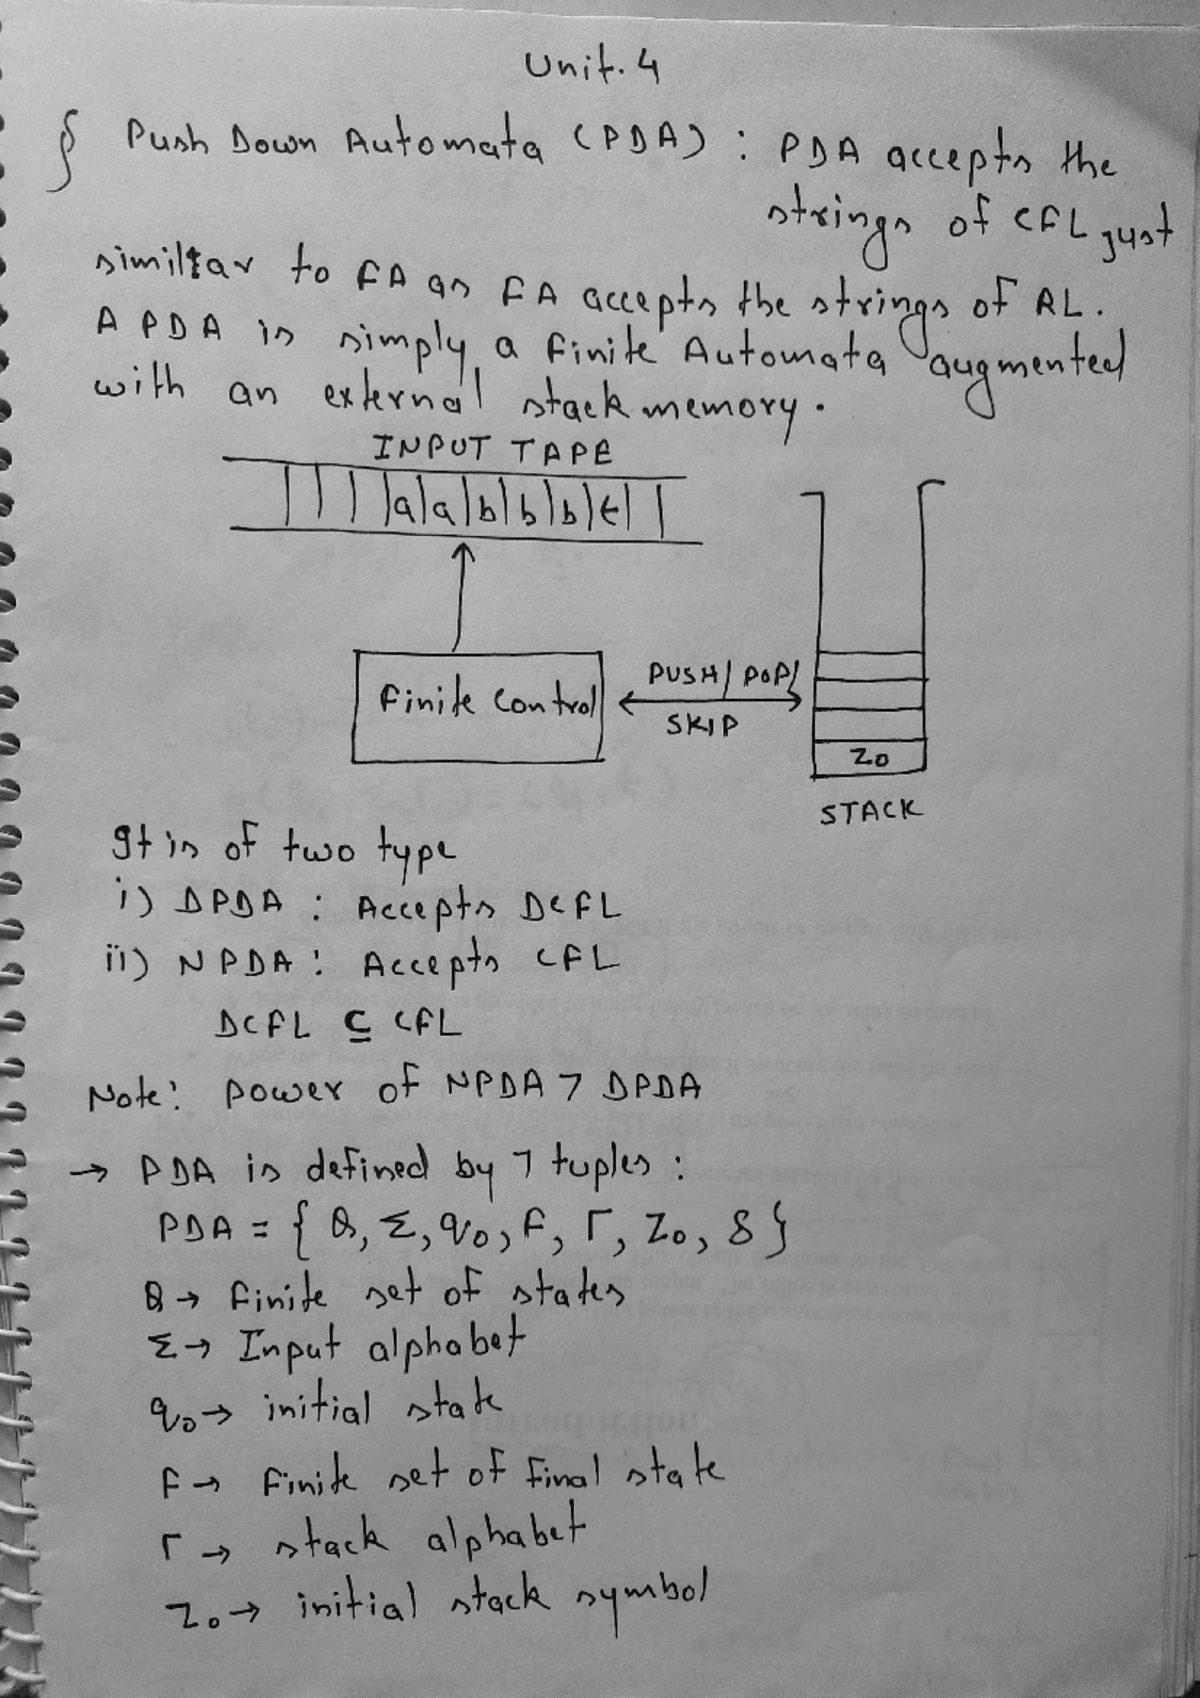 Unit. 4
§ Push Down Automata (PDA) : PDA accepts the
strings of CFL just
similar to FA as FA accepts the strings of RL.
A PDA is simply a Finite Automata augmented
with an external stack memory.
INPUT TAPE
a a b b b ϵ
Finite Control
PUSH/ POP/
SKIP
Z0
STACK
It is of two type
i) DPDA : Accepts DCFL
ii) NPDA : Accepts CFL
DCFL ⊆ CFL
Note: Power of NPDA > DPDA
→ PDA is defined by 7 tuples :
PDA = { Q, Σ, q0, F, Γ, Z0, δ }
Q → Finite set of states
Σ → Input alphabet
q0 → initial state
F → Finite set of Final state
Γ → stack alphabet
Z0 → initial stack symbol